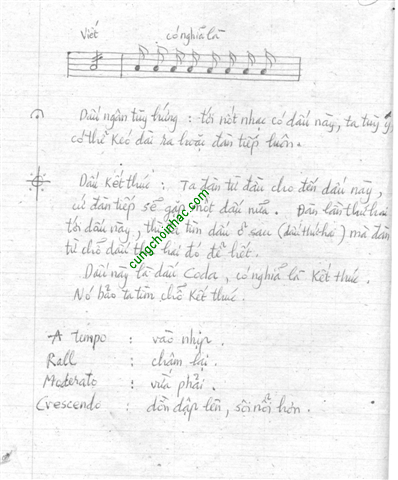 Viết có nghĩa là
Dấu ngân tùy hứng : tới nốt nhạc có dấu này, ta tùy ý
có thể kéo dài ra hoặc đàn tiếp luôn.
Dấu kết thúc : Ta đàn từ đầu cho đến dấu này,
cứ đàn tiếp sẽ gặp một dấu nữa. Đàn lần thứ hai
tới dấu này, thì tìm dấu ở sau (dấu thứ hai) mà đàn
từ chỗ dấu thứ hai đó để hết.
Dấu này là dấu Coda, có nghĩa là kết thúc.
Nó bảo ta tìm chỗ kết thúc.
A tempo : vào nhịp.
Rall : chậm lại.
Moderato : vừa phải.
Crescendo : dồn dập lên, sôi nổi hơn.
cungchoinhac.com